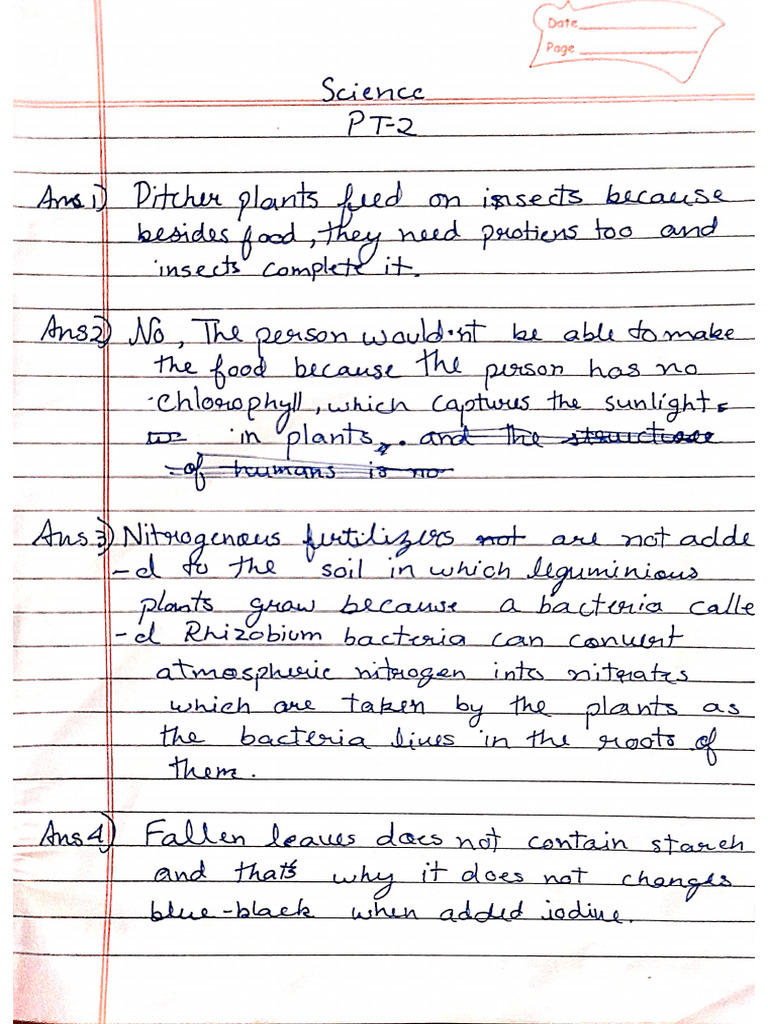 Date
Page
Science
PT-2
Ans 1) Pitcher plants feed on insects because
besides food, they need protiens too and
insects complete it.
Ans 2) No, The person would.nt be able to make
the food because the person has no
Chlorophyll, which captures the sunlight
in plants. and the structure
of humans is no
Ans 3) Nitrogenous fertilizers not are not adde
-d to the soil in which leguminious
plants grow because a bacteria calle
-d Rhizobium bacteria can convert
atmospheric nitrogen into nitrates
which are taken by the plants as
the bacteria lives in the roots of
them.
Ans 4) Fallen leaves does not contain starch
and that's why it does not changes
blue-black when added iodine.